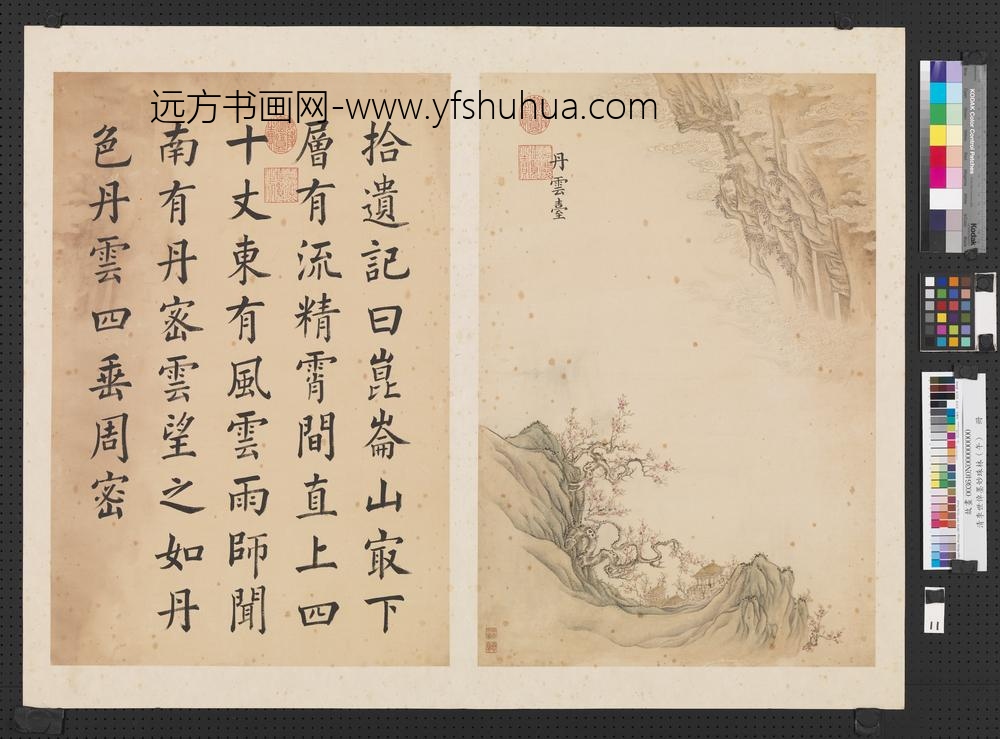 远方书画网-www.yfshuhua.com
拾遺記曰崑崙山冣下
層有流精霄間直上四
十丈東有風雲雨師聞
南有丹密雲望之如丹
色丹雲四垂周密
丹雲臺
KODAK Color Control Patches
Kodak